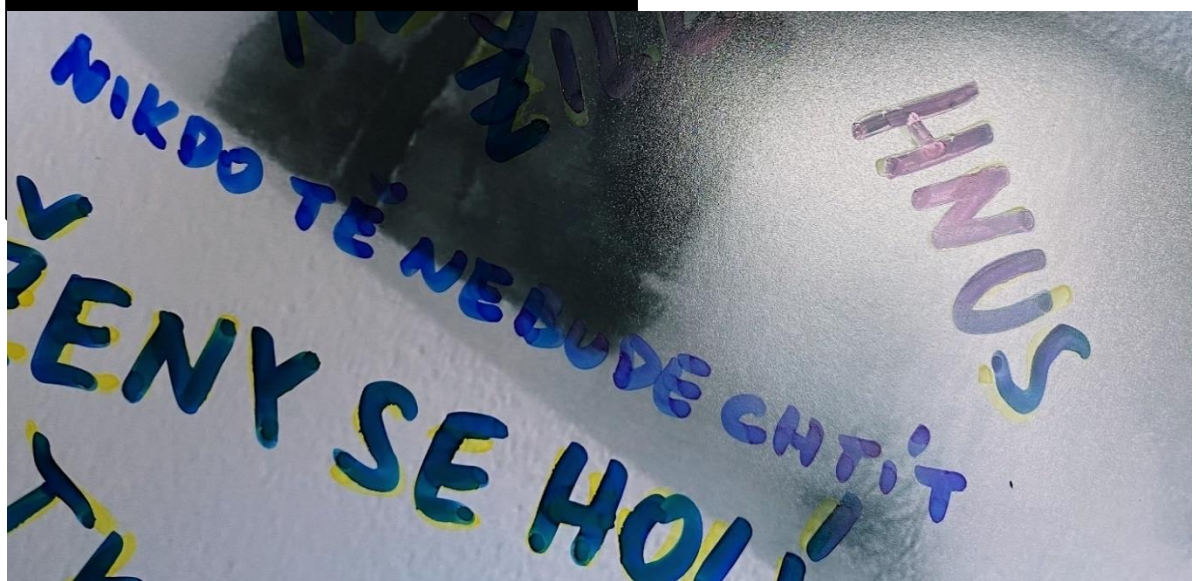 NIKDO TĚ NEBUDE CHTÍT
HNUS
ŽENY SE HOLÍ